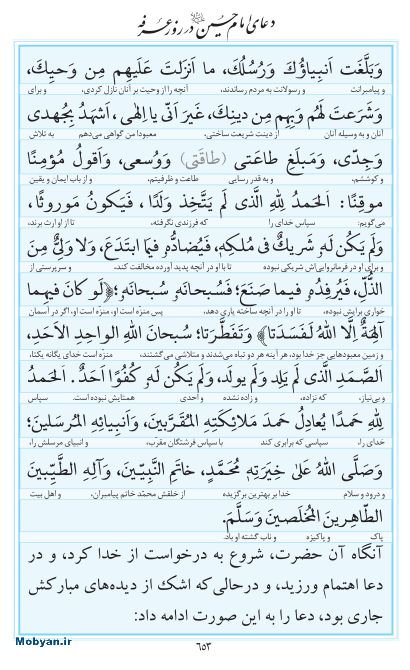 دعای امام حسین (علیه السلام) در روز عرفه
وَبَلَّغَت اَنبِیاؤُکَ وَرُسُلُکَ، ما اَنزَلتَ عَلَیهِم مِن وَحیِکَ،
و پیامبرانت و رسولانت به مردم رساندند، آنچه را از وحیت بر آنان نازل کردی، و برای
وَشَرَعتَ لَهُم وَبِهِم مِن دینِکَ، غَیرَ اَنّی یا اِلهی، اَشهَدُ بِجُهدی
آنان و به وسیله آنان از دینت شریعت ساختی، معبودا من گواهی می‌دهم به تلاش
وَجِدّی، وَمَبلَغِ طاعَتی (طاقَتی) وَوُسعی، وَاَقولُ مُؤمِنًا
و کوششم، و به قدر رسایی طاعت و ظرفیتم، و از باب ایمان و یقین
موقِنًا: اَلحَمدُ لِلّٰهِ الَّذی لَم یَتَّخِذ وَلَدًا، فَیَکونَ مَوروثًا،
می‌گویم: سپاس خدای را که فرزندی نگرفته، تا از او ارث برند،
وَلَم یَکُن لَهُ شَریکٌ فی مُلکِهِ، فَیُضادَّهُ فیمَا ابتَدَعَ، وَلا وَلِیٌّ مِنَ
و برای او در فرمانروایی‌اش شریکی نبوده تا با او در آنچه پدید آورده مخالفت کند، و سرپرستی از
الذُّلِّ، فَیُرفِدَهُ فیما صَنَعَ؛ فَسُبحانَهُ سُبحانَهُ؛ ﴿لَو کانَ فیهِما
خواری برایش نبوده، تا او را در آنچه ساخته یاری دهد، پس منزه است او، منزه است او، اگر در آسمان
آلِهَةٌ اِلَّا اللهُ لَفَسَدَتا﴾ وَتَفَطَّرَتا؛ سُبحانَ اللهِ الواحِدِ الاَحَدِ،
و زمین معبودهایی جز خدا بود، هر آینه هر دو تباه می‌شدند و متلاشی می‌گشتند، منزه است خدای یگانه یکتا،
اَلصَّمَدِ الَّذی لَم یَلِد وَلَم یولَد، وَلَم یَکُن لَهُ کُفُوًا اَحَدٌ. اَلحَمدُ
بی‌نیاز، که نزاده، و زاده نشده و أحدی همتایش نبوده است. سپاس
لِلّٰهِ حَمدًا یُعادِلُ حَمدَ مَلائِکَتِهِ المُقَرَّبینَ، وَاَنبِیائِهِ المُرسَلینَ؛
خدای را، سپاسی که برابری کند با سپاس فرشتگان مقرب، و انبیای مرسلش را،
وَصَلَّی اللهُ عَلی خِیَرَتِهِ مُحَمَّدٍ، خاتَمِ النَّبِیّینَ، وَآلِهِ الطَّیِّبینَ
و درود و سلام خدا بر بهترین برگزیده از خلقش محمّد خاتم پیامبران، و اهل بیت
الطّاهِرینَ المُخلَصینَ وَسَلَّمَ.
پاک و پاکیزه و ناب گشته او باد.
آنگاه آن حضرت، شروع به درخواست از خدا کرد، و در
دعا اهتمام ورزید، و درحالی‌که اشک از دیده‌های مبارکش
جاری بود، دعا را به این صورت ادامه داد:
Mobyan.ir
٦٥٣